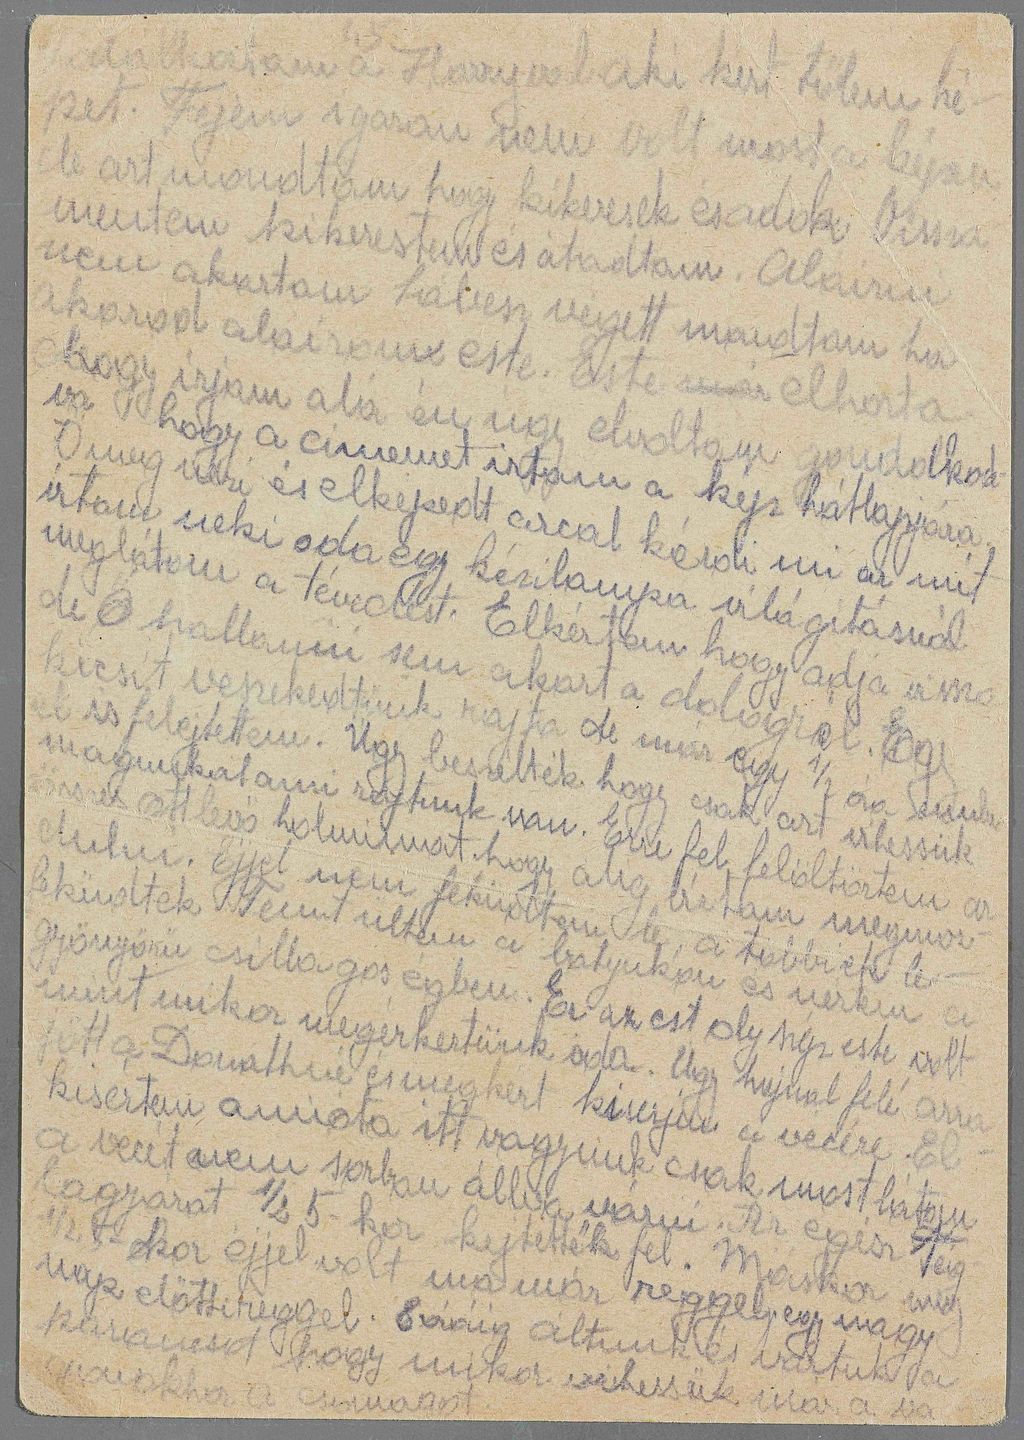 találkoztam a Harryval aki kért tőlem ké-
pet. Fejem igazán nem volt most a képen
de azt mondtam hogy kikeresek és adok. Vissza
mentem kikerestem és átadtam. Aláirni
nem akartam végett mondtam ha
akarod aláirom este. Este már elhozta
hogy irjam alá én ugy elvoltam gondolkod-
va hogy a cimemet irtam a kép hátlapjára.
Ő meg nézi és elképedt arcal kérdi mi az mit
irtam neki oda egy kézilámpa világitásnál
meglátom a tévedést. Elkértem hogy adja vissza
de Ő hallani sem akart a dologról. Egy
kicsit veszekedtünk rajta de már egy 1/2 óra mulva
el is felejtettem. Ugy beszélték hogy csak azt vihessük
magunkkal ami rajtunk van. Erre fel, felöltöztem az
összes ottlevő holmimat hogy alig birtam megmoz-
dulni. Éjjel nem feküdtem le, a többiek le-
feküdtek. Fennt ültem a batyukon és néztem a
gyönyörü csillagos égben. Ez az est oly szép este volt
mint mikor megérkeztünk ide. Ugy hajnal felé arra
jött a Donáthné és megkért kisérjem a vecére. El-
kisértem amióta itt vagyunk csak most látom
a vecét nem sorban állva várni. Az egész Tég-
lagyárat 1/2 5-kor kejtették fel. Máskor még
1/2 5-kor éjjel volt ma már reggel, egy nagy
nap előtti reggel. 8 óráig áltunk és vártuk a
parancsot hogy mikor vihessük már a va-
gonokhoz a csomagot.